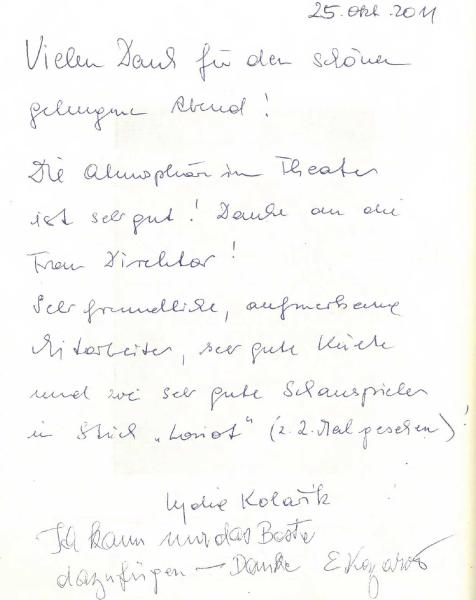 25. Okt. 2011
Vielen Dank für den schönen
gelungene Abend!
Die Atmosphär im Theater
ist sehr gut! Danke an die
Frau Direktor!
Sehr freundliche, aufmerksame
Mitarbeiter, sehr gute Küche
und zwei sehr gute Schauspieler
in Stück „Loriot“ (z. 2. Mal gesehen)!
Lydie Kolařik
Ich kann nur das Beste
dazufügen — Danke E.